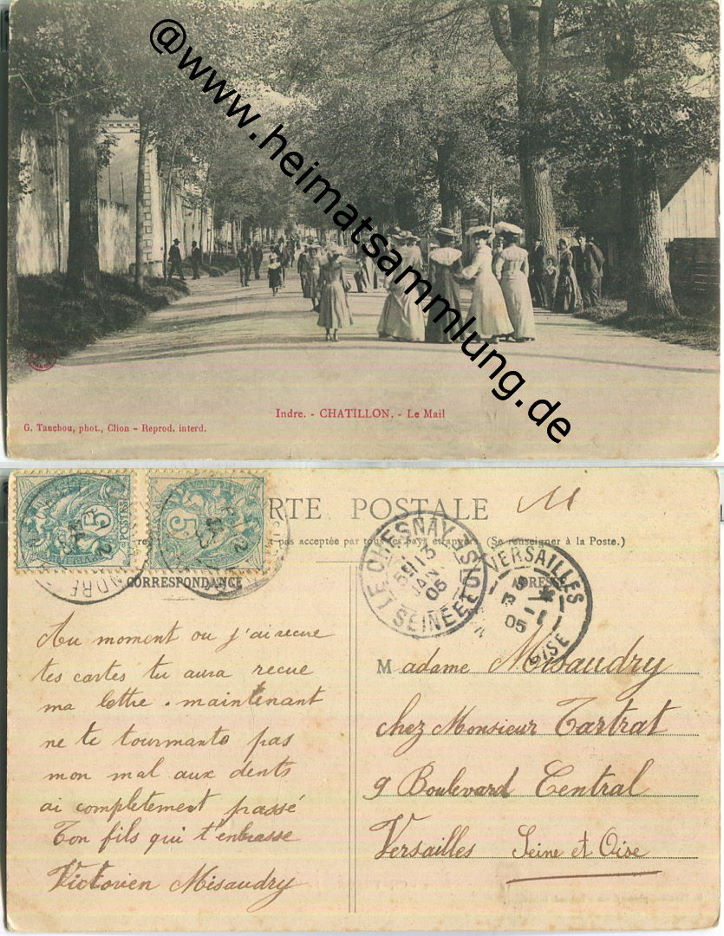 @www.heimatsammlung.de
Indre. - CHATILLON. - Le Mail
G. Tauchou, phot., Clion - Reprod. interd.
RTE POSTALE
M
pas acceptée par tous les pays étrangers. (Se renseigner à la Poste.)
5 POSTES
5
INDRE
CORRESPONDANCE
LE CHESNAY
JANV
05
SEINE ET OISE
ADRESSE
VERSAILLES
05
OISE
Au moment ou j'ai recue
tes cartes tu aura recue
ma lettre. maintenant
ne te tourmante pas
mon mal aux dents
ai completement passé
Ton fils qui t'enbrasse
Victorien Misaudry
Madame Misaudry
chez Monsieur Tartrat
9 Boulevard Central
Versailles Seine et Oise